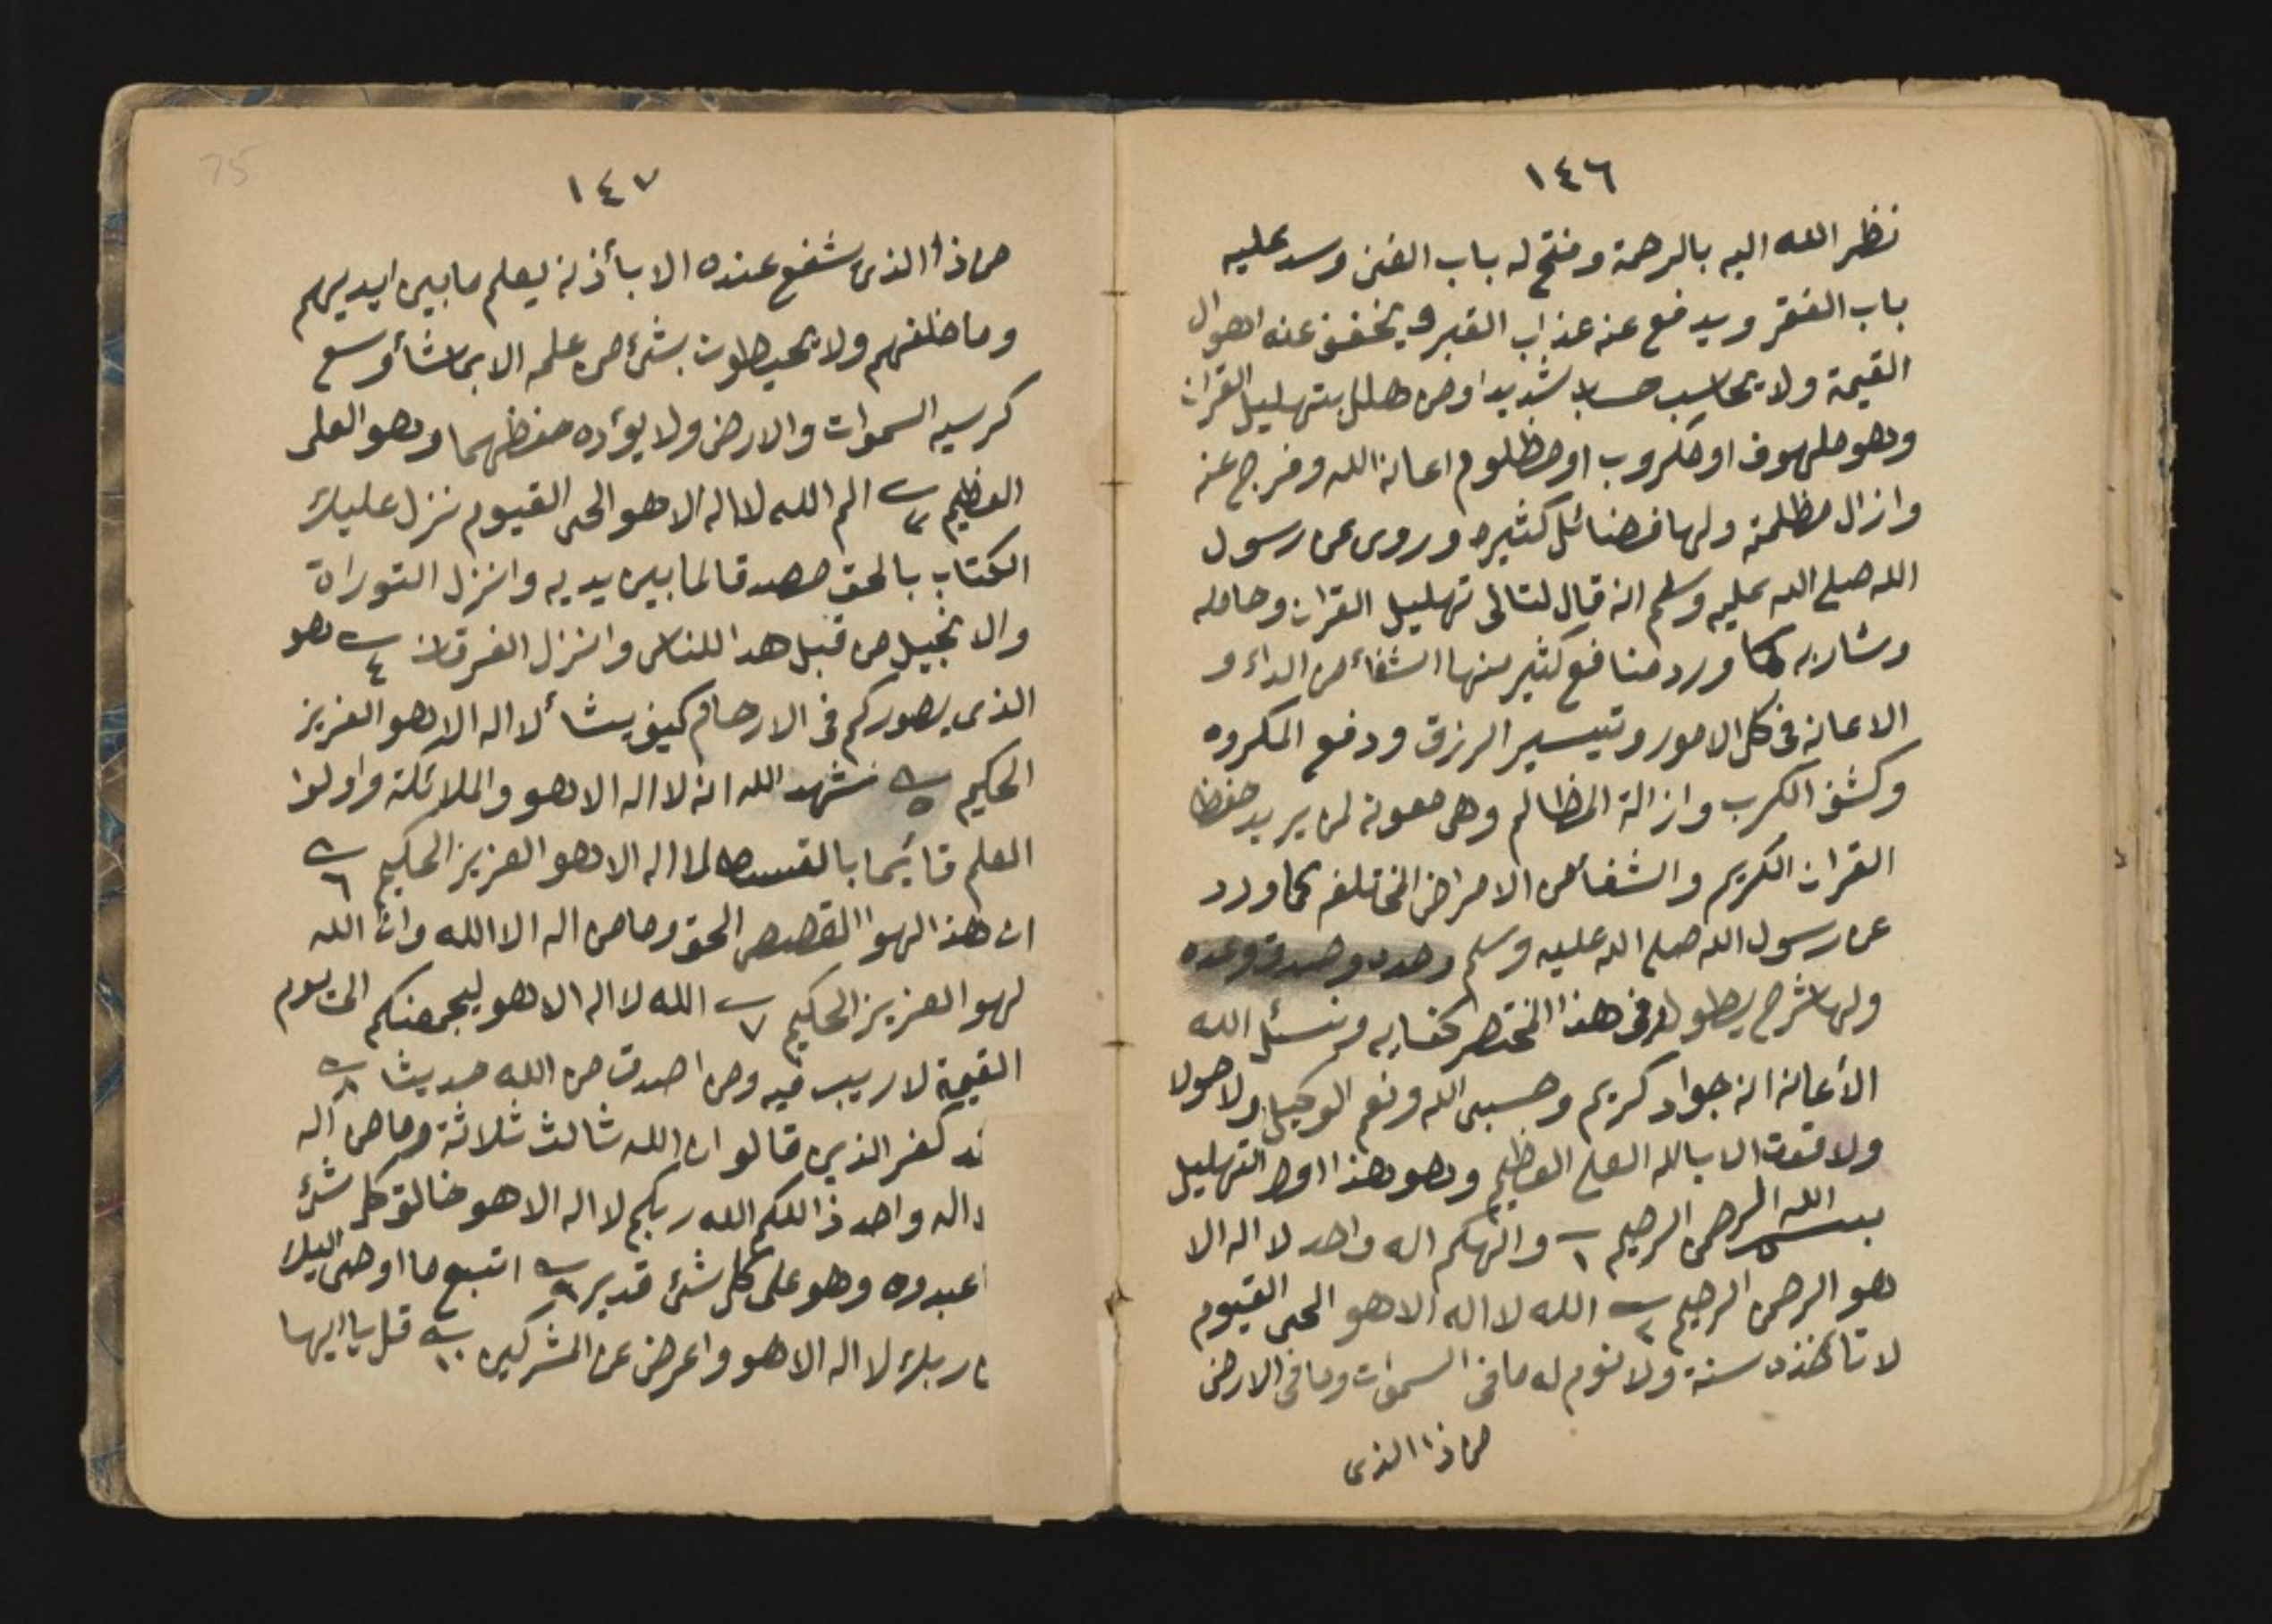 ١٤٦
نظر الله اليه بالرحمة وفتح له باب الغنى وسد عليه
باب الفقر ويدفع عنه عذاب القبر ويخفف عنه اهوال
القيمة ولا يحاسب حسابا شديدا ومن هلل بتهليل القران
وهو ملهوف او مكروب او مظلوم اعانه الله وفرج عنه
وازال مظلمته ولها فضائل كثيره وروى عن رسول
الله صلى الله عليه وسلم انه قال لتالى تهليل القران وحامله
وشاربه كما ورد منافع كثير منها الشفاء من الداء و
الاعانه فى كل الامور وتيسير الرزق ودفع المكروه
وكشف الكرب وازالة المظالم وهى معونه لمن يريد حفظ
القران الكريم والشفأ من الامراض المختلفه كما ورد
عن رسول الله صلى الله عليه وسلم وصدق وعده
ولها شرح يطول وفى هذا المختصر كفايه ونسئل الله
الأعانه انه جواد كريم وحسبى الله ونعم الوكيل ولا حولا
ولا قوت الا بالله العلى العظيم وهو هذا اول التهليل
بسم الله الرحمن الرحيم ١ والهكم اله واحد لا اله الا
هو الرحمن الرحيم ٢ الله لا اله الا هو الحى القيوم
لا تأخذه سنة ولا نوم له ما فى السموات وما فى الارض
من ذا الذى
75
١٤٧
من ذا الذى شفع عنده الا بأذنه يعلم ما بين ايديهم
وما خلفهم ولا يحيطون بشئ من علمه الا بما شأ وسع
كرسيه السموات والارض ولا يؤده حفظهما وهو العلى
العظيم ٣ الم الله لا اله الا هو الحى القيوم نزل عليك
الكتاب بالحق مصدقا لما بين يديه وانزل التوراة
والانجيل من قبل هدا للناس وانزل الفرقان ٤ هو
الذى يصوركم فى الارحام كيف يشأ لا اله الا هو العزيز
الحكيم ٥ شهد الله انه لا اله الا هو والملائكة واولوا
العلم قائما بالقسط لا اله الا هو العزيز الحكيم ٦
ان هذا لهوا القصص الحق وما من اله الا الله وان الله
لهو العزيز الحكيم ٧ الله لا اله الا هو ليجمعنكم الى يوم
القيمة لا ريب فيه ومن اصدق من الله حديثا ٨
قد كفر الذين قالو ان الله ثالث ثلاثة وما من اله
اله واحد ذاللكم الله ربكم لا اله الا هو خالق كل شئ
اعبدوه وهو على كل شئ قدير ٩ اتبع ما اوحى اليك
من ربك لا اله الا هو واعرض عن المشركين ١٠ قل يا ايها